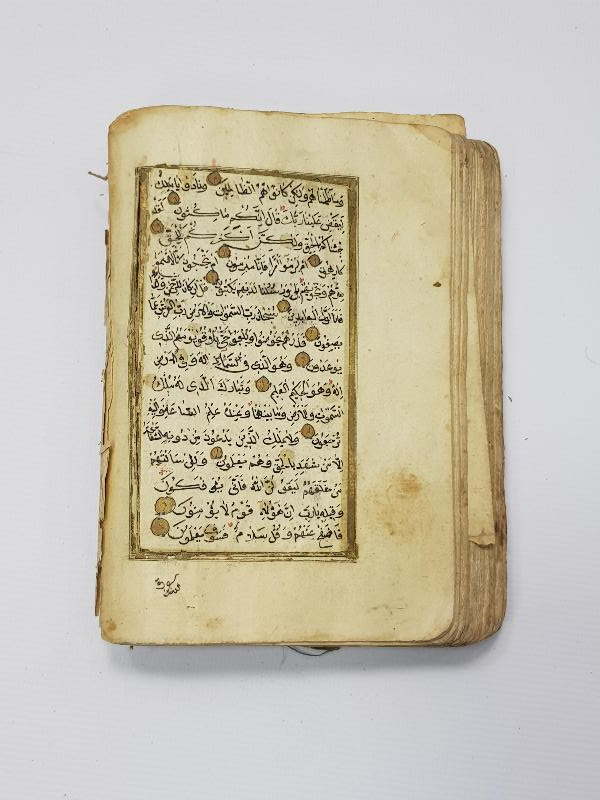 وما ظلمناهم ولكن كانوا هم الظالمين ونادوا يا مالك
ليقض علينا ربك قال إنكم ماكثون لقد
جئناكم بالحق ولكن أكثركم للحق
كارهون أم أبرموا أمرا فإنا مبرمون أم يحسبون أنا لا نسمع
سرهم ونجويهم بلى ورسلنا لديهم يكتبون قل إن كان للرحمن ولد
فأنا أول العابدين سبحان رب السموات والأرض رب العرش عما
يصفون فذرهم يخوضوا ويلعبوا حتى يلاقوا يومهم الذي
يوعدون وهو الذي في السماء إله وفي الأرض
إله وهو الحكيم العليم وتبارك الذي له ملك
السموات والأرض وما بينهما وعنده علم الساعة وإليه
ترجعون ولا يملك الذين يدعون من دونه الشفاعة
إلا من شهد بالحق وهم يعلمون ولئن سألتهم
من خلقهم ليقولن الله فأنى يؤفكون
وقيله يارب إن هؤلاء قوم لا يؤمنون
فاصفح عنهم وقل سلام فسوف يعلمون
سورة